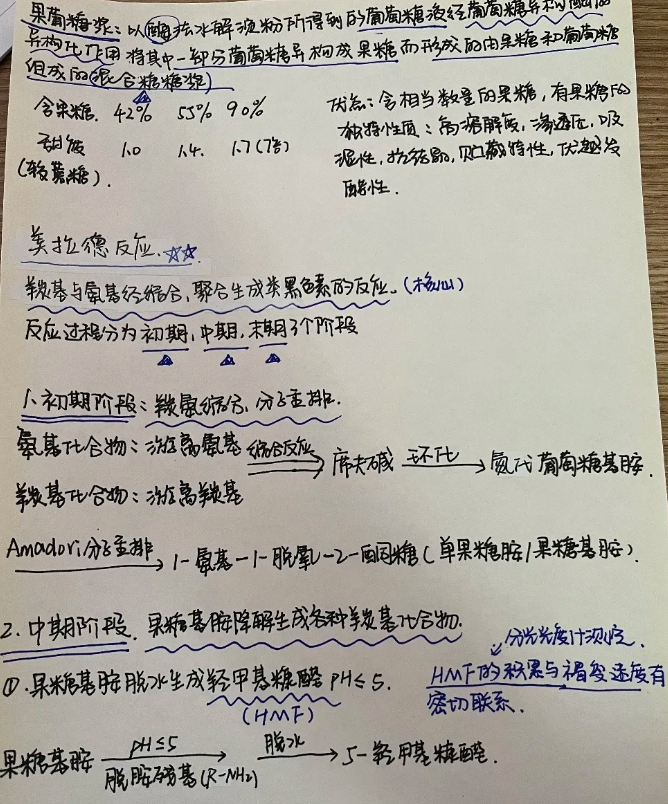 果葡糖浆：以酶法水解淀粉所得到的葡萄糖液经葡萄糖异构酶的
异构化作用将其中一部分葡萄糖异构成果糖而形成的由果糖和葡萄糖
组成的混合糖糖浆)
含果糖. 42% 55% 90%
甜度 1.0 1.4. 1.7(7倍)
(较蔗糖).
优点：含相当数量的果糖，有果糖的
独特性质：高溶解度，渗透压，吸
湿性，抗结晶，贮藏特性，优越发
酵性.
美拉德反应.☆☆.
羰基与氨基经缩合，聚合生成类黑色素的反应.(核心)
反应过程分为初期，中期，末期3个阶段
1.初期阶段：羰氨缩合，分子重排.
氨基化合物：游离氨基 缩合反应 席夫碱 环化 氨代葡萄糖基胺.
羰基化合物：游离羰基
Amadori分子重排 1-氨基-1-脱氧-2-酮糖(单果糖胺/果糖基胺).
2.中期阶段.果糖基胺降解生成各种羰基化合物.
分光光度计测定.
①.果糖基胺脱水生成羟甲基糠醛 pH≤5.
(HMF)
HMF的积累与褐变速度有
密切联系.
果糖基胺 pH≤5 脱胺残基(R-NH2) 脱水 5-羟甲基糠醛.